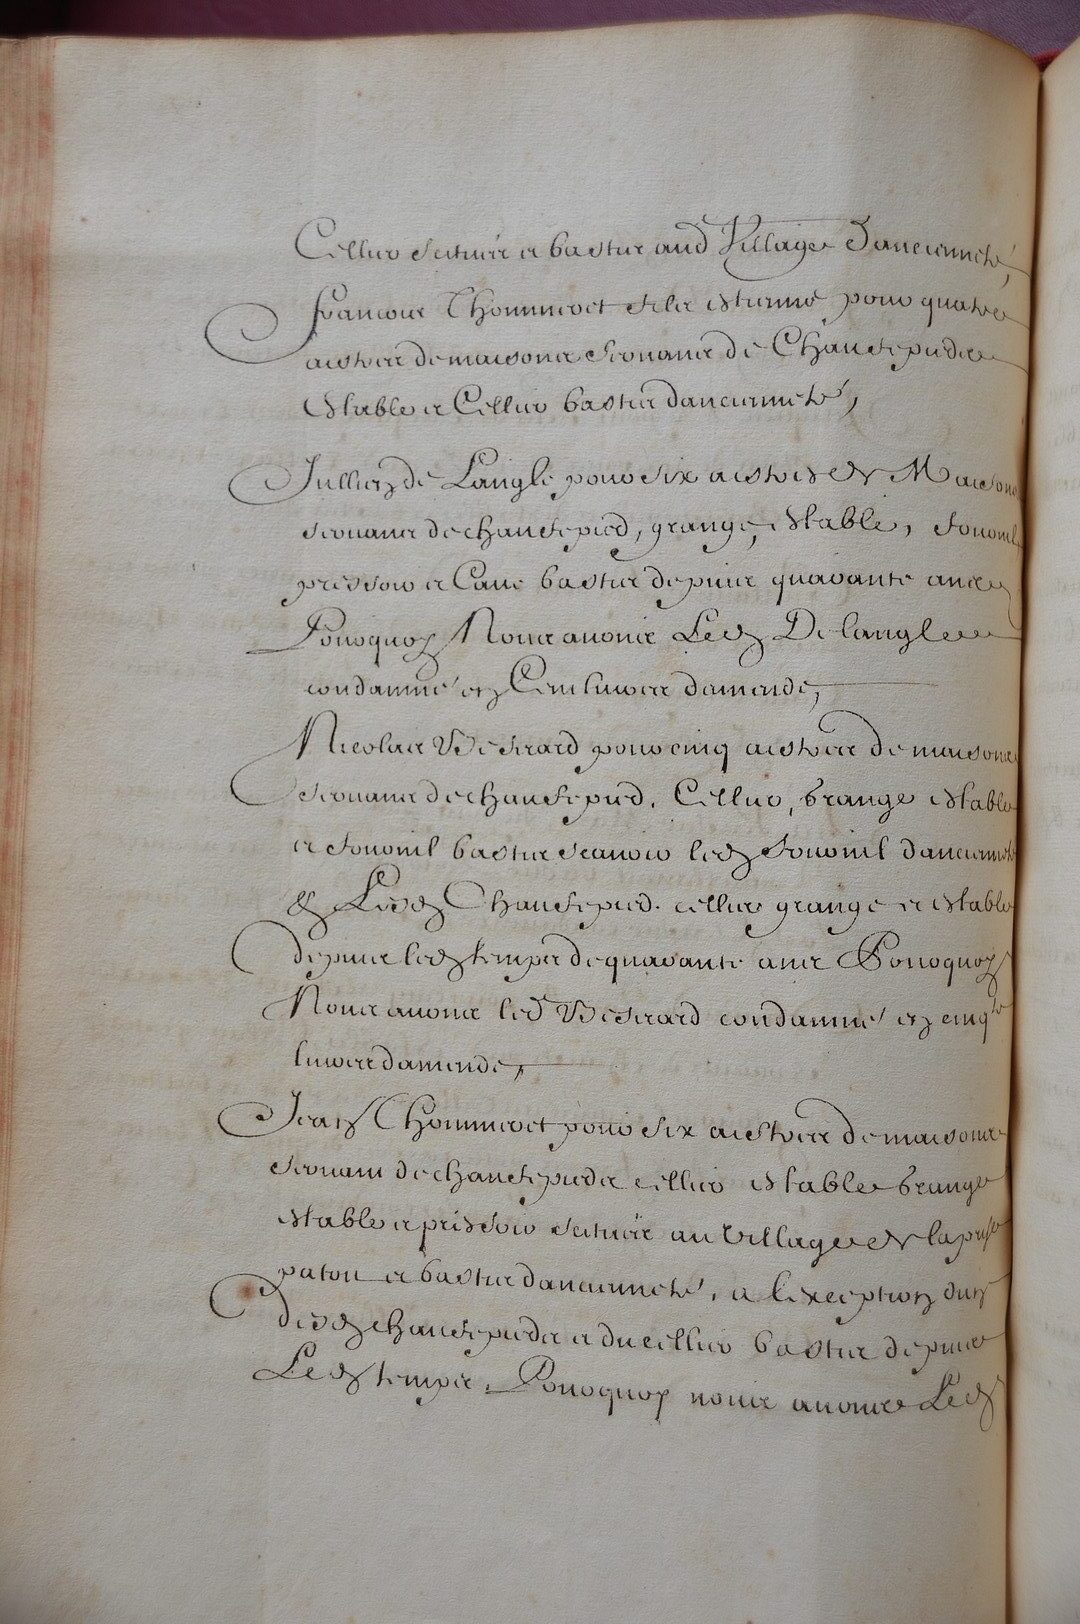 Cellier scituéz et bastie aud Village Dancienneté,
François Thommeret filz estienne pour quatre
aistres de maisons servans de Chaufepieds
Estable et Cellier bastis dancienneté,
Jullien de Langle pour six aistres de Maisons
servans de chaufepied, grange, estable, fournil
pressoir et Cave bastis depuis quarante ans
Pourquoy Nous avons Led De langle
condamné en Cent livres damende,
Nicolas Besnard pour cinq aistres de maisons
servans de chaufepied. Cellier, Grange estable
et fournil bastis scavoir led fournil dancienneté
& Lesd Chaufepied. cellier grange et estable
depuis led temps de quarante ans Pourquoy
Nous avons led Besnard condamné en cinq te
livres damende,
Jean Thommeret pour six aistres de maisons
servant de chaufepieds cellier estable Grange
estable et pressoir scituéz au village de la
et bastis dancienneté, a lexception dun
desd chaufepieds et du cellier bastis depuis
Led temps, Pourquoy nous avons Led